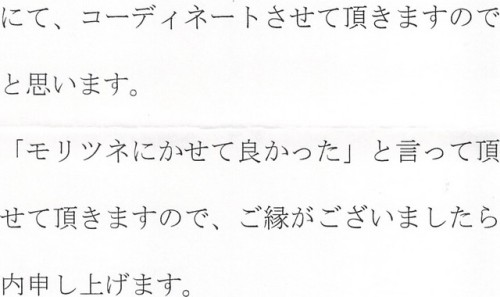 にて、コーディネートさせて頂きますので
と思います。
「モリツネにかせて良かった」と言って頂
せて頂きますので、ご縁がございましたら
内申し上げます。